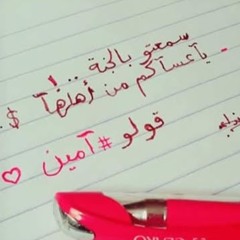 سمعتو بالجنة ..!
يآعسآكم من أهلهآ $
قولو #آمين